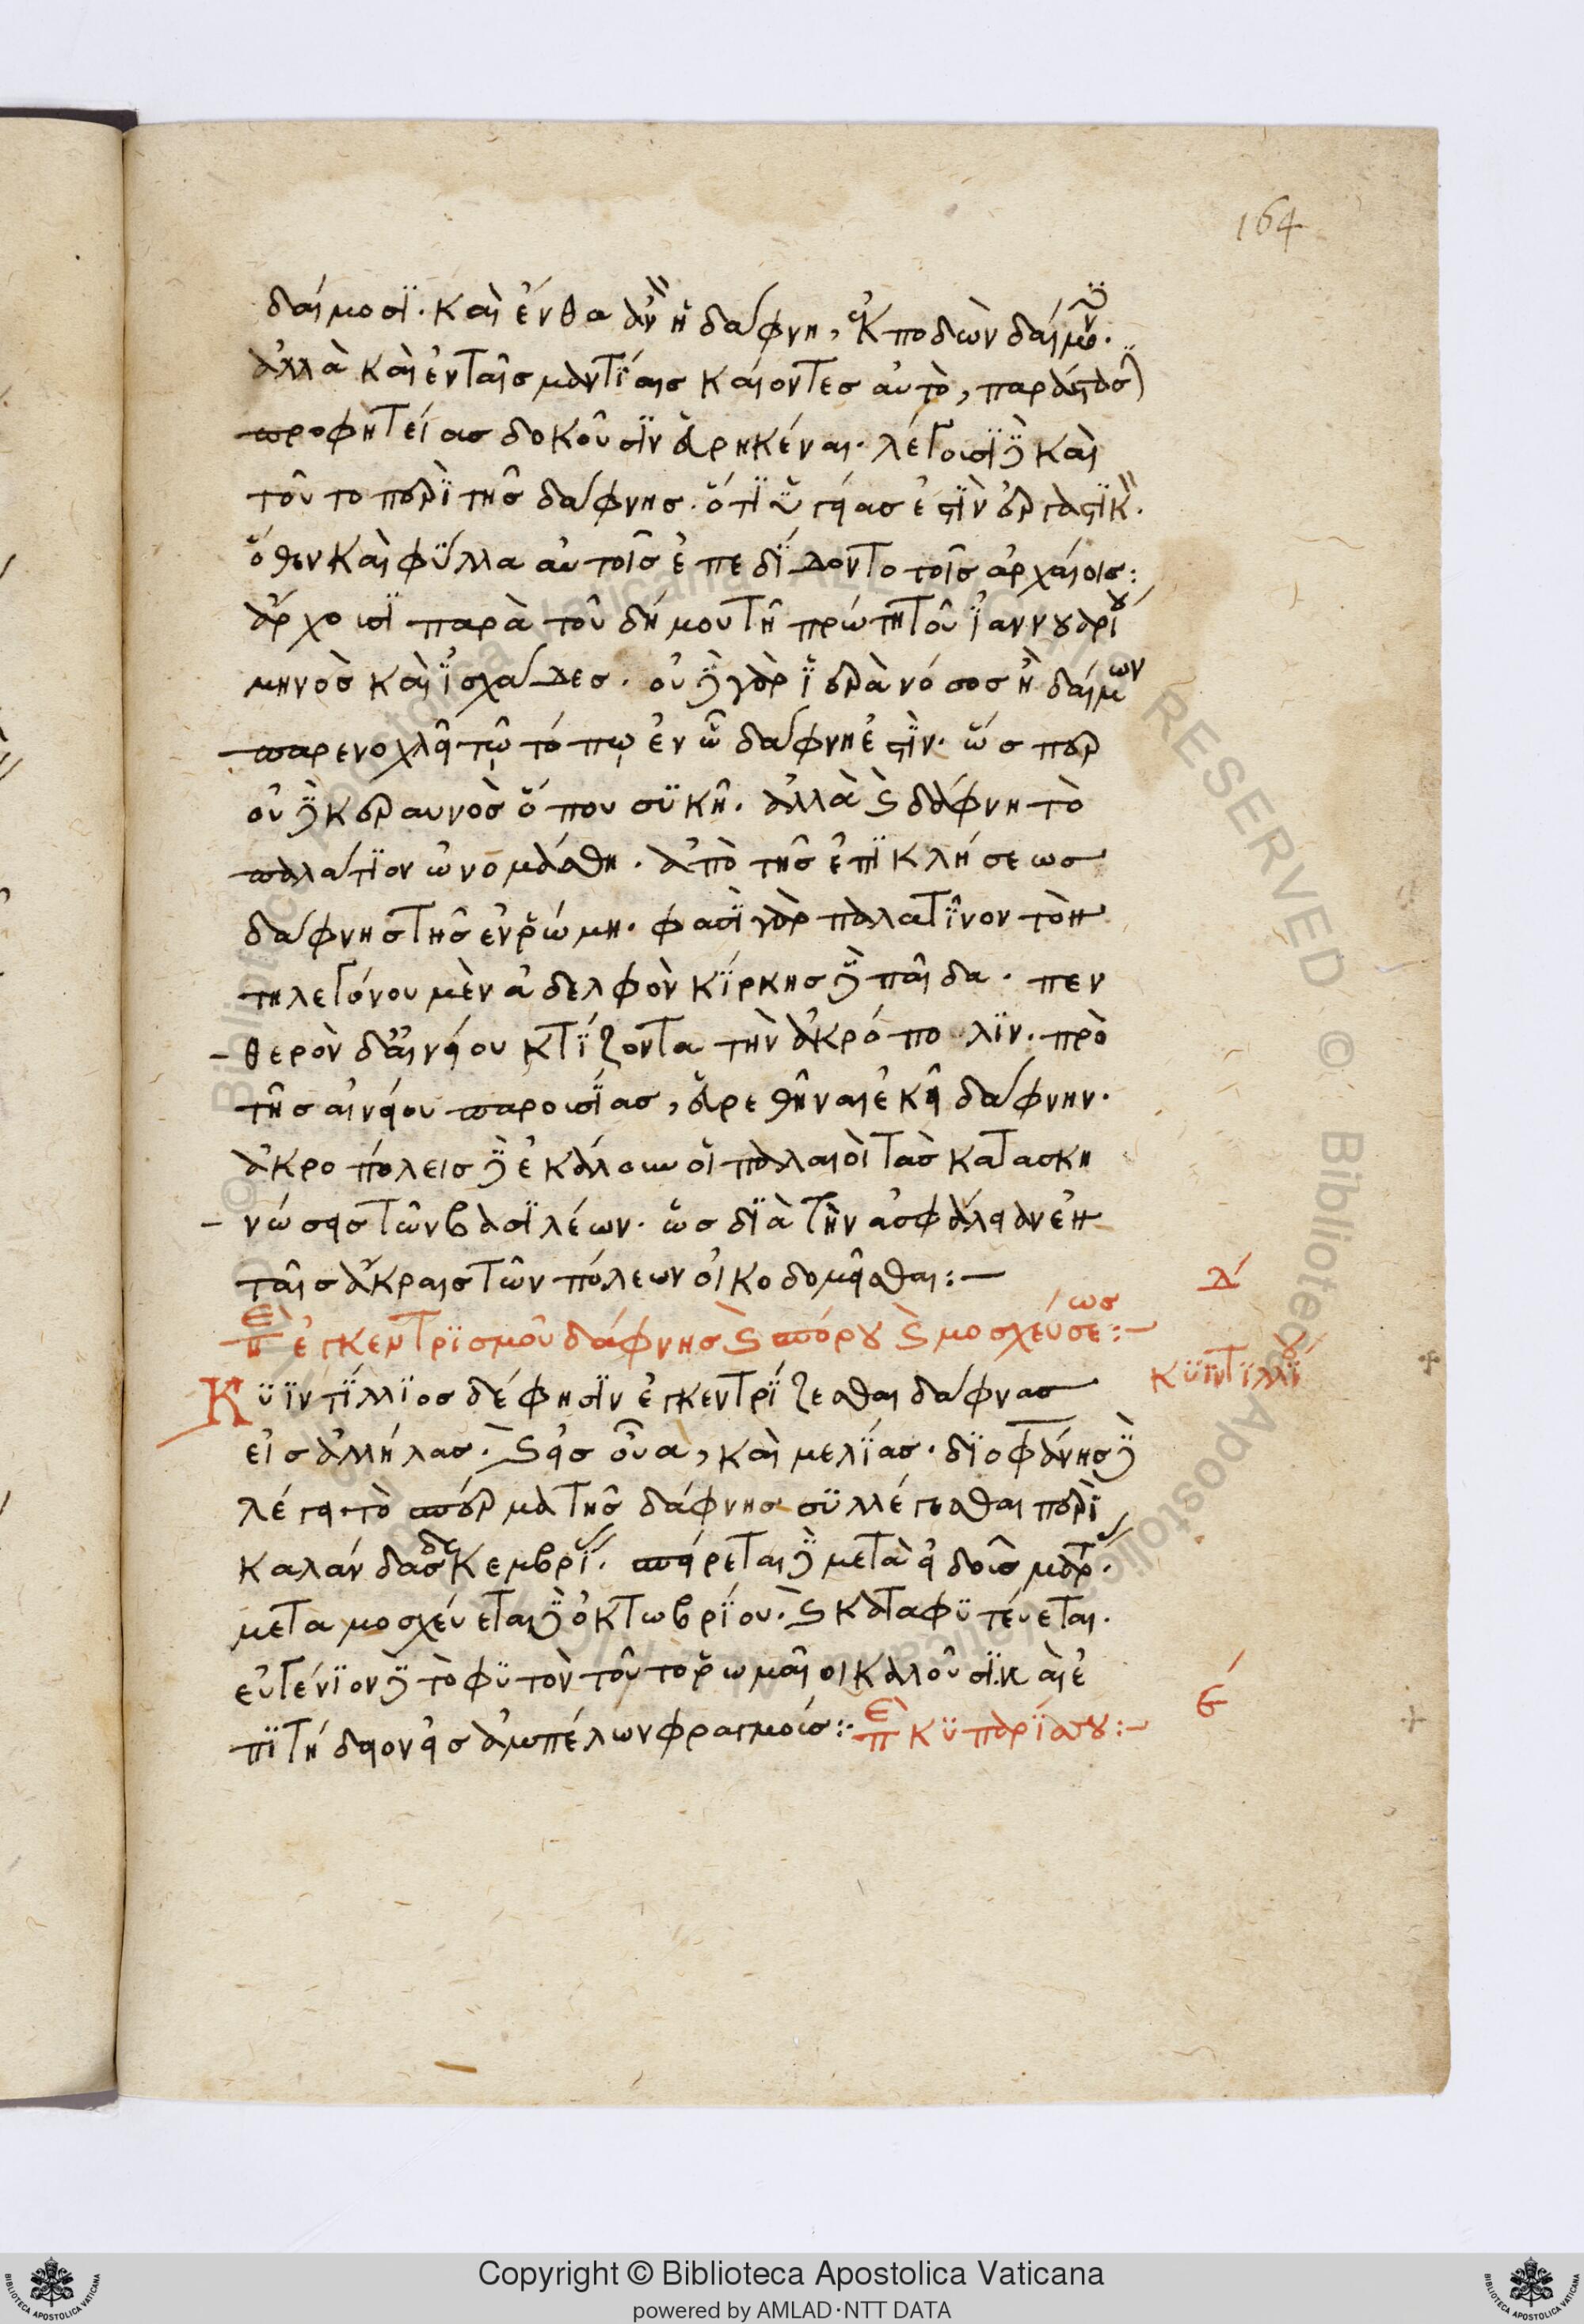 164
δαίμοσϊ. καὶ ἔνθα ἂν ἦ δάφνη, ἐκποδὼν δαίμων.
ἀλλὰ καὶ ἐν ταῖς μαντίαις καίοντες αὐτὸ,
προφητείας δοκοῦσϊν εὑρηκέναι. λέγουσϊ δὲ καὶ
τοῦτο περὶ τῆς δάφνης. ὅτϊ ὑγείας ἐστὶν ἐργαστϊκὴ.
ὅθεν καὶ φύλλα αὐτοῖς ἐπεδίδοντο τοῖς ἀρχαίοις:
ἄρχουσϊ παρὰ τοῦ δήμου τῆ πρώτη τοῦ ϊαννουαρίου
μηνὸς καὶ ϊσχάδες. οὐδὲ γὰρ ϊερὰ νόσος ἢ δαίμων
παρενοχλεῖ τῷ τόπῳ ἐν ὧ δάφνη ἐστὶν. ὥσπερ
οὐδὲ κεραυνὸς ὅπου συκῆ. ἀλλὰ καὶ δάφνη τὸ
παλάτϊον ὠνομάσθη. ἀπὸ τῆς ἐπϊκλήσεως
δάφνης τῆς ἐν ῥώμη. φασὶ γὰρ παλατῖνον τὸν
τηλεγόνου μὲν ἀδελφὸν κίρκης δὲ παῖδα. πεν
θερὸν δὲ αἰνείου κτίζοντα τὴν ἀκρόπολϊν. πρὸ
τῆς αἰνείου παρουσίας, εὑρεθῆναι ἐκεῖ δάφνην.
ἀκροπόλεις δὲ ἐκάλουν οἱ παλαιοὶ τὰς κατασκη
νώσεις τῶν βασϊλέων. ὡς δϊὰ τὴν ἀσφάλειαν ἐν
ταῖς ἄκραις τῶν πόλεων οἰκοδομεῖσθαι:—
δ´
περὶ ἐγκεντρϊσμοῦ δάφνης καὶ σπόρου καὶ μοσχεύσεως:—
κϋϊντϊλλίου
Κϋϊντίλλϊος δέ φησϊν ἐγκεντρίζεσθαι δάφνας
εἰς ἀλλήλας. καὶ εἰς οὖα, καὶ μελίας. δϊοφάνης δὲ
λέγει τὸ σπέρμα τῆς δάφνης συλλέγεσθαι περὶ
καλάνδας δεκεμβρίου. σπείρεται δὲ μετὰ εἰδοὺς μαρτίου.
μεταμοσχεύεται δὲ ὀκτωβρίου. καὶ καταφϋτεύεται.
εὐγένϊον δὲ τὸ φϋτὸν τοῦτο ῥωμαῖοι καλοῦσϊ. καὶ ἐ
πϊτήδειον εἰς ἀμπέλων φραγμούς: περὶ κϋπαρίσσου:—